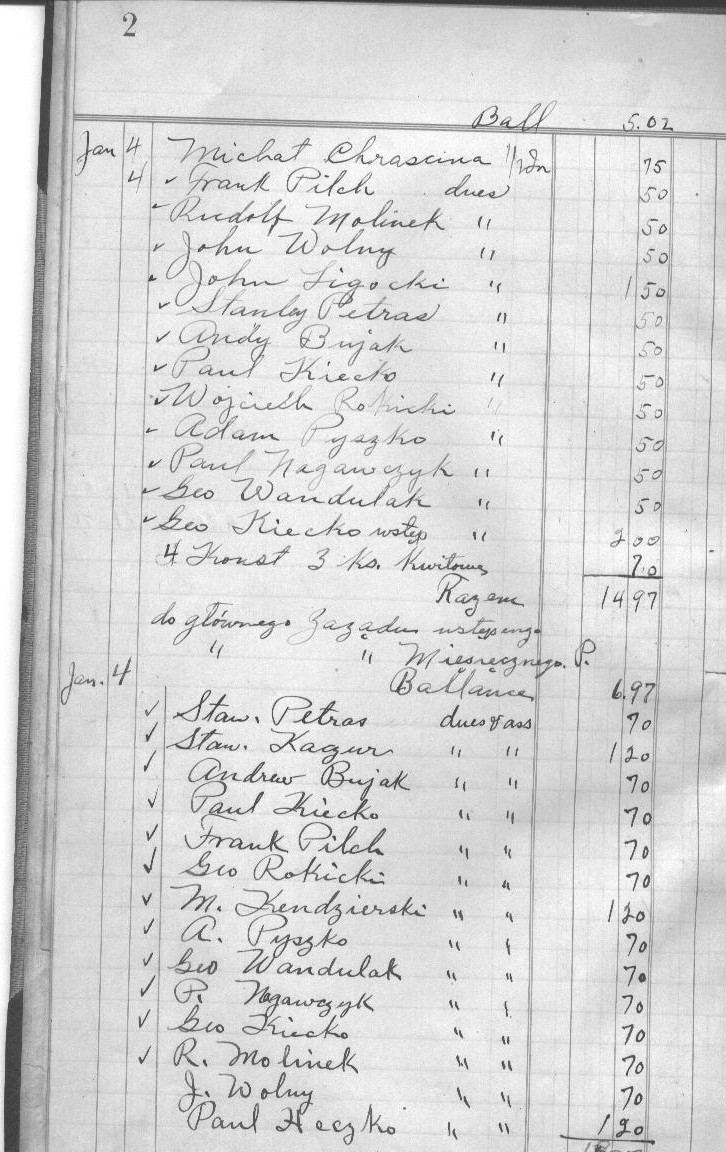 2
Ball 5.02
Jan 4 Michał Chrascina 75
4 ✓ Frank Pilch dues 50
✓ Rudolf Molinek " 50
✓ John Wolny " 50
✓ John Ligocki " 1 50
✓ Stanley Petras " 50
✓ Andy Bujak " 50
✓ Paul Kiecko " 50
✓ Wojciech Rokicki " 50
✓ Adam Pyszko " 50
✓ Paul Nogawczyk " 50
✓ Geo Wandulak " 50
✓ Geo Kiecko wstęp " 2 00
4 Konst 3 ks. Kwitowe 70
Razem 14 97
do głównego Zarządu
" " Miesięcznego. P.
Jan. 4 Ballance 6.97
✓ Staw. Petras dues & ass 70
✓ Staw. Kazur " " 1 20
✓ Andrew Bujak " " 70
✓ Paul Kiecko " " 70
✓ Frank Pilch " " 70
✓ Geo Rokicki " " 70
✓ M. Kendzierski " " 1 20
✓ A. Pyszko " " 70
✓ Geo Wandulak " " 70
✓ P. Nogawczyk " " 70
✓ Geo Kiecko " " 70
✓ R. Molinek " " 70
J. Wolny " " 70
Paul Heczko " " 1 20